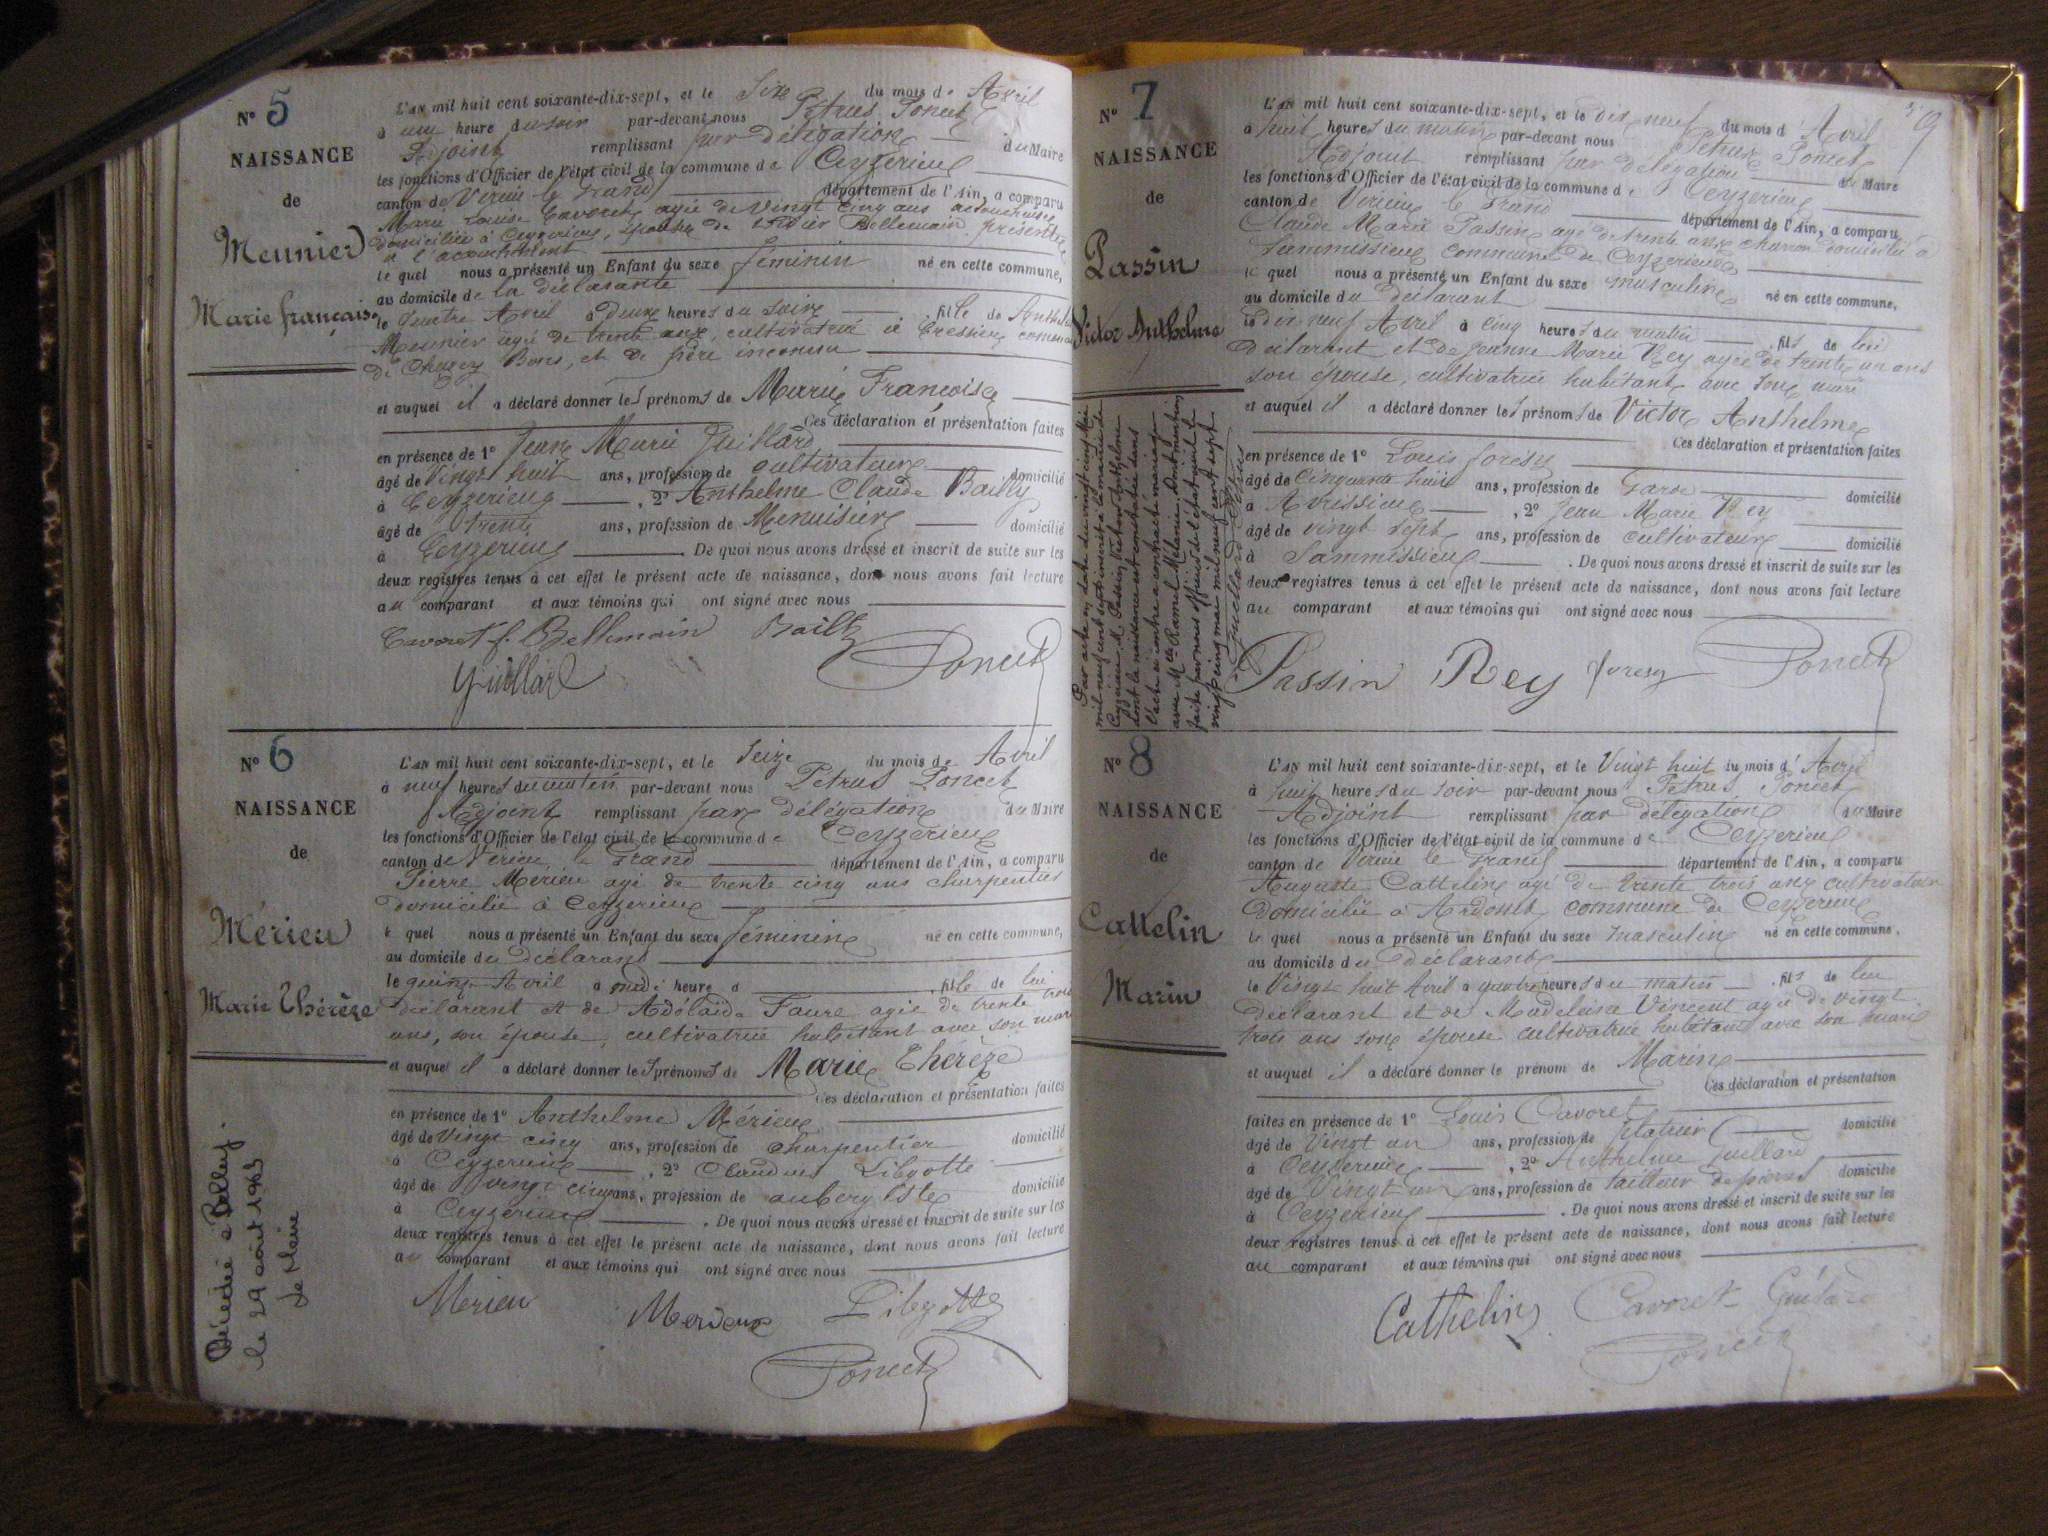 N° 5
NAISSANCE
de
Meunier
Marie française
L'AN mil huit cent soixante-dix-sept, et le Six du mois de Avril
à une heure du soir par-devant nous Petrus Poncet
Adjoint remplissant par délégation du Maire
les fonctions d'Officier de l'état civil de la commune de Ceyzerieu
canton de Virieu le Grand département de l'Ain, a comparu
Marie Louise Cavoret agée de Vingt cinq ans accoucheuse
domiciliée à Ceyzerieu, épouse de Bellemain présente
à l'accouchement
le quel nous a présenté un Enfant du sexe féminin né en cette commune,
au domicile de la déclarante
le quatre Avril à deux heures du soir fille de Anthel
Meunier agée de trente ans, cultivatrice à Cressieu commune
de Chazey Bons, et de père inconnu
et auquel il a déclaré donner les prénoms de Marie Françoise
Ces déclaration et présentation faites
en présence de 1° Jean Marie Guillard
âgé de Vingt huit ans, profession de cultivateur domicilié
à Ceyzerieu, 2° Anthelme Claude Bailly
âgé de trente ans, profession de Menuisier domicilié
à Ceyzerieu. De quoi nous avons dressé et inscrit de suite sur les
deux registres tenus à cet effet le présent acte de naissance, dont nous avons fait lecture
au comparant et aux témoins qui ont signé avec nous
Cavoret f. Bellemain Bailly
Guillard Poncet
N° 6
NAISSANCE
de
Mérieu
Marie Thérèze
Décédée à Belley
le 29 août 1963
Le Maire
L'AN mil huit cent soixante-dix-sept, et le Seize du mois de Avril
à neuf heures du matin par-devant nous Petrus Poncet
Adjoint remplissant par délégation du Maire
les fonctions d'Officier de l'état civil de la commune de Ceyzerieu
canton de Virieu le Grand département de l'Ain, a comparu
Pierre Mérieu agé de trente cinq ans charpentier
domicilié à Ceyzerieu
le quel nous a présenté un Enfant du sexe féminin né en cette commune,
au domicile du déclarant
le quinze Avril à midi heure d fille de lui
déclarant et de Adélaïde Faure agée de trente trois
ans, son épouse, cultivatrice habitant avec son mari
et auquel il a déclaré donner les prénoms de Marie Thérèze
Ces déclaration et présentation faites
en présence de 1° Anthelme Mérieu
âgé de vingt cinq ans, profession de charpentier domicilié
à Ceyzerieu, 2° Claudius Libyotte
âgé de vingt cinq ans, profession de aubergiste domicilié
à Ceyzerieu. De quoi nous avons dressé et inscrit de suite sur les
deux registres tenus à cet effet le présent acte de naissance, dont nous avons fait lecture
au comparant et aux témoins qui ont signé avec nous
Mérieu Merieux Libyotte
Poncet
N° 7
NAISSANCE
de
Passin
Victor Anthelme
Par acte en date du vingt cinq Mai
mil neuf cent sept inscrit à la mairie de
Ceyzerieu, M. Passin, Victor Anthelme
dont la naissance est constatée dans
l'acte ci contre a contracté mariage
avec Mlle Ramel Mélanie. Dont mention
faite par nous officier de l'état civil le
vingt cinq mai mil neuf cent sept
Guillard Petrus
L'AN mil huit cent soixante-dix-sept, et le dix neuf du mois d' Avril
à huit heures du matin par-devant nous Petrus Poncet
Adjoint remplissant par délégation du Maire
les fonctions d'Officier de l'état civil de la commune de Ceyzerieu
canton de Virieu le Grand département de l'Ain, a comparu
Claude Marie Passin agé de trente ans charron domicilié à
Sammissieu commune de Ceyzerieu
le quel nous a présenté un Enfant du sexe masculin né en cette commune,
au domicile du déclarant
le dix neuf Avril à cinq heures du matin fils de lui
déclarant et de Jeanne Marie Rey agée de trente un ans
son épouse, cultivatrice habitant avec son mari
et auquel il a déclaré donner les prénoms de Victor Anthelme
Ces déclaration et présentation faites
en présence de 1° Louis Joresy
âgé de Cinquante huit ans, profession de Garde domicilié
à Avrissieu, 2° Jean Marie Rey
âgé de vingt sept ans, profession de cultivateur domicilié
à Sammissieu. De quoi nous avons dressé et inscrit de suite sur les
deux registres tenus à cet effet le présent acte de naissance, dont nous avons fait lecture
au comparant et aux témoins qui ont signé avec nous
Passin Rey Joresy Poncet
N° 8
NAISSANCE
de
Cattelin
Marin
L'AN mil huit cent soixante-dix-sept, et le Vingt huit du mois d' Avril
à huit heures du soir par-devant nous Petrus Poncet
Adjoint remplissant par délégation du Maire
les fonctions d'Officier de l'état civil de la commune de Ceyzerieu
canton de Virieu le Grand département de l'Ain, a comparu
Auguste Cattelin agé de trente trois ans cultivateur
domicilié à Ardosset commune de Ceyzerieu
le quel nous a présenté un Enfant du sexe masculin né en cette commune,
au domicile du déclarant
le Vingt huit Avril à quatre heures du matin fils de lui
déclarant et de Madeleine Vincent agée de vingt
trois ans son épouse cultivatrice habitant avec son mari
et auquel il a déclaré donner le prénom de Marin
Ces déclaration et présentation
faites en présence de 1° Louis Cavoret
âgé de Vingt un ans, profession de platrier domicilié
à Ceyzerieu, 2° Anthelme Guillard
âgé de Vingt un ans, profession de tailleur de pierres domicilié
à Ceyzerieu. De quoi nous avons dressé et inscrit de suite sur les
deux registres tenus à cet effet le présent acte de naissance, dont nous avons fait lecture
au comparant et aux témoins qui ont signé avec nous
Cathelin Cavoret Guilard
Poncet